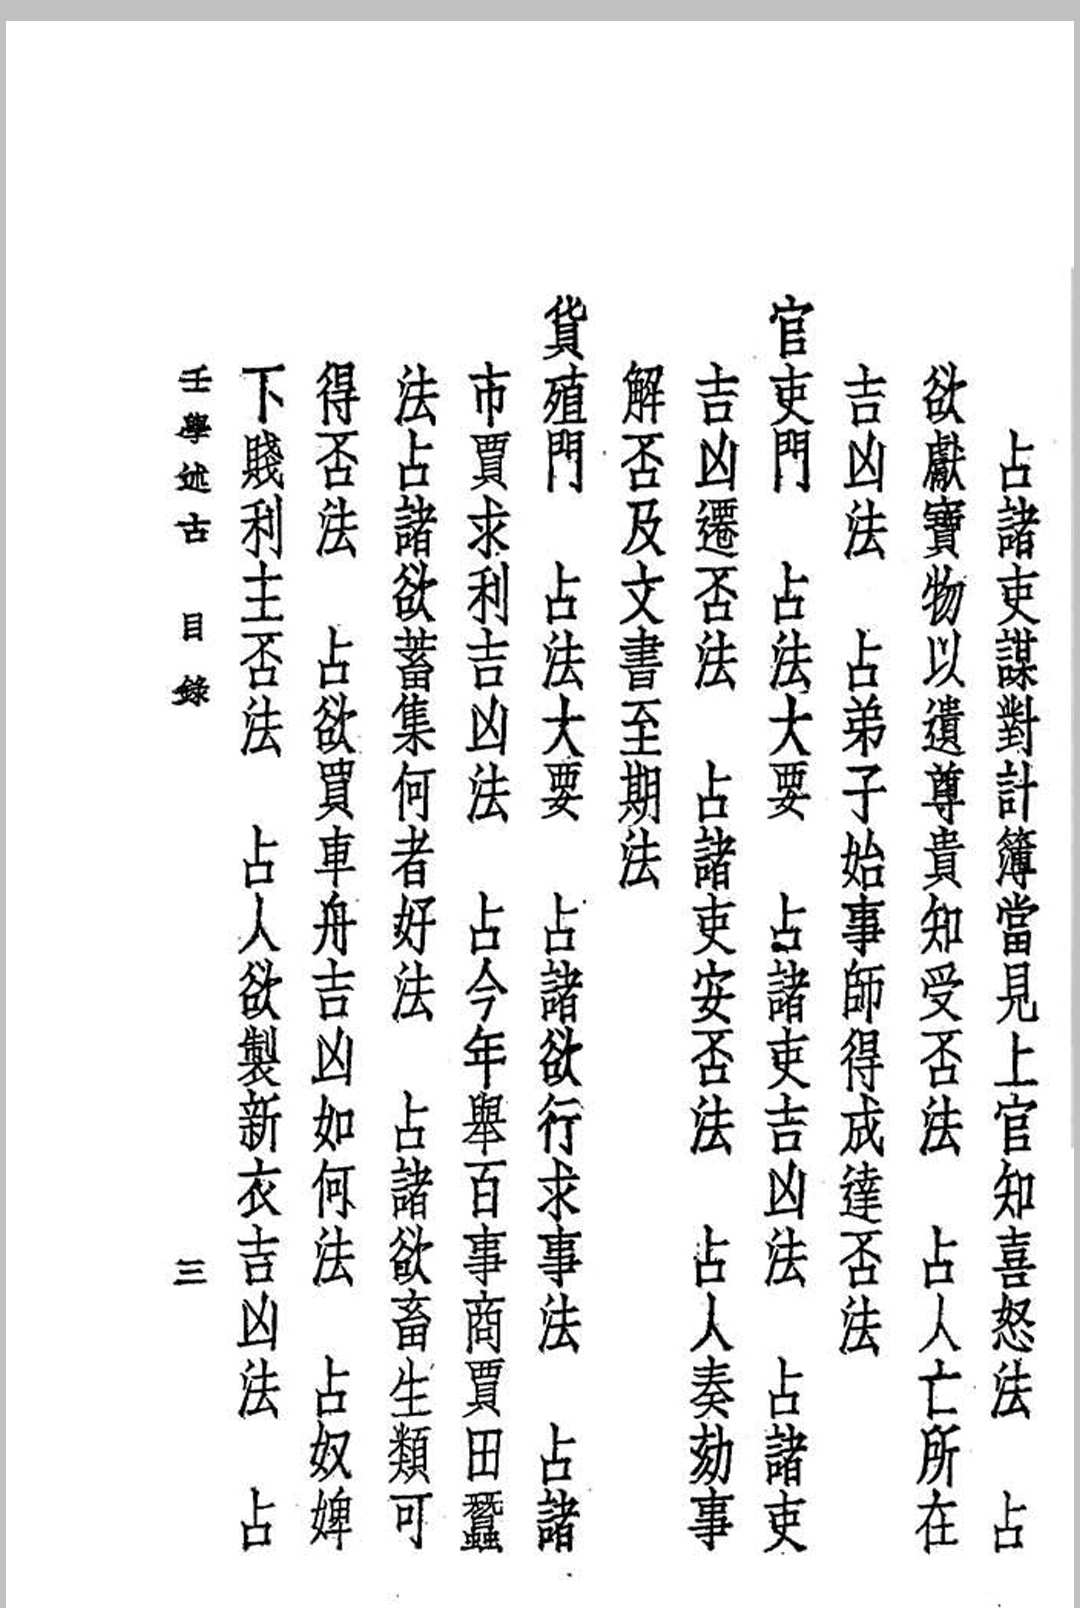 占諸吏謀對計簿當見上官知喜怒法　占
欲獻寶物以遺尊貴知受否法　占人亡所在
吉凶法　占弟子始事師得成達否法
官吏門　占法大要　占諸吏吉凶法　占諸吏
吉凶遷否法　占諸吏安否法　占人奏劾事
解否及文書至期法
貨殖門　占法大要　占諸欲行求事法　占諸
市賈求利吉凶法　占今年舉百事商賈田蠶
法占諸欲蓄集何者好法　占諸欲畜生類可
得否法　占欲買車舟吉凶如何法　占奴婢
下賤利主否法　占人欲製新衣吉凶法　占
壬學述古　目錄　三